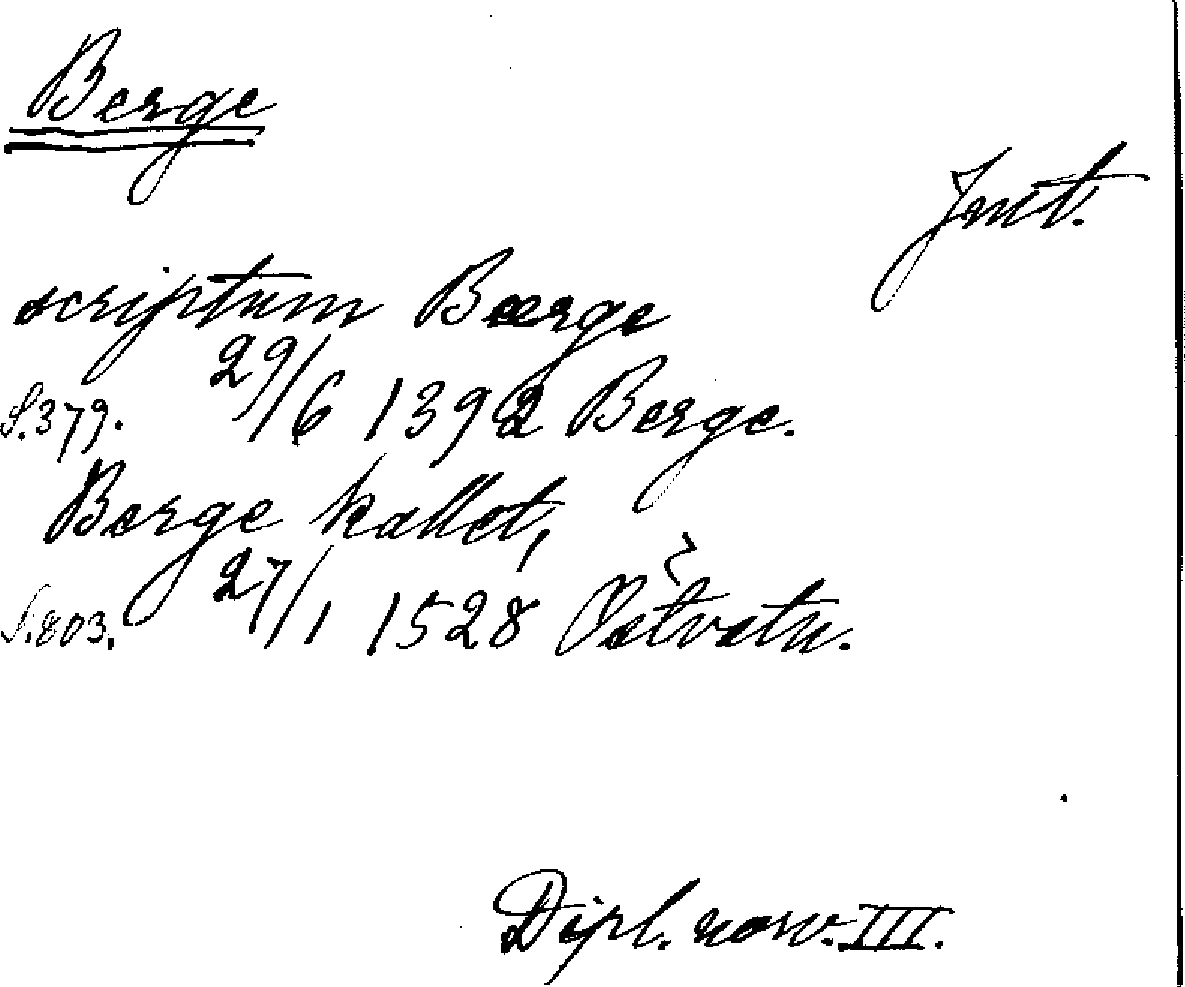 Berge
Jmt.
scriptum Bærge
S. 379. 29/6 1392 Berge.
Berge kallet,
S. 803. 27/1 1528
Dipl. norv. III.